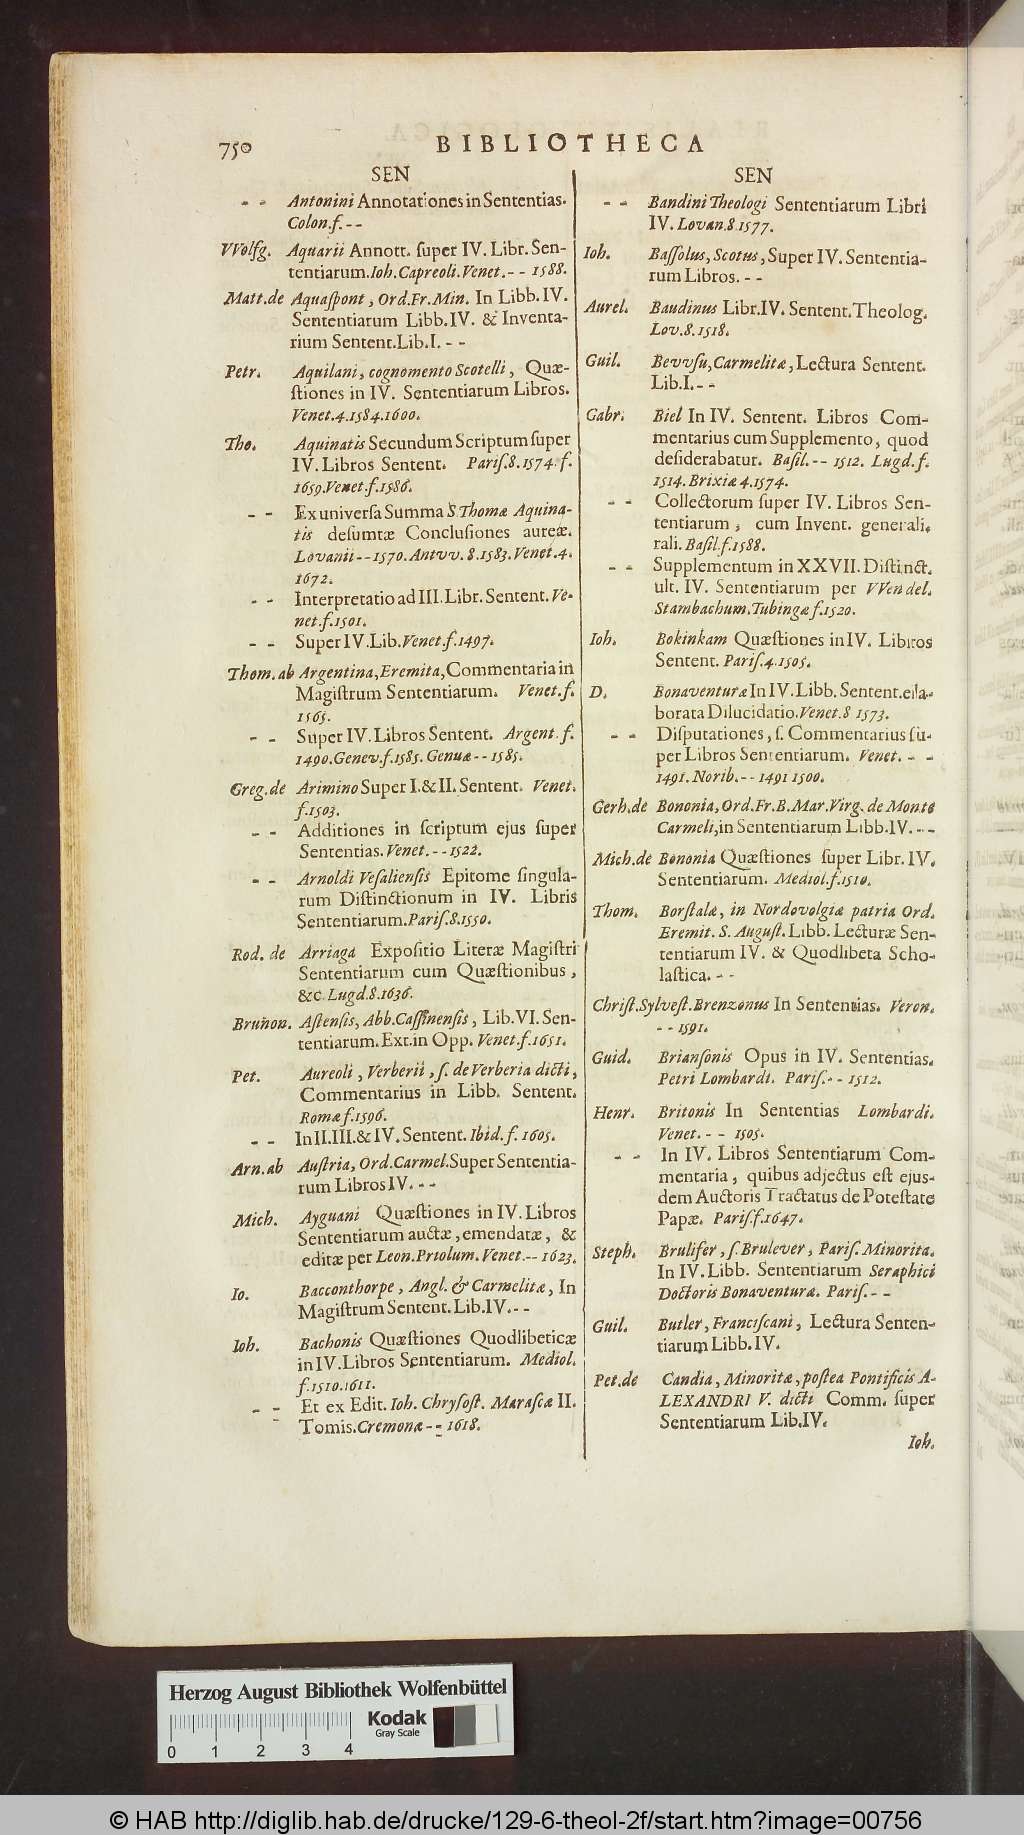 750 BIBLIOTHECA
SEN
- - Antonini Annotationes in Sententias.
Colon.f.--
VVolfg. Aquarii Annott. ſuper IV. Libr. Sen-
tentiarum. Ioh. Capreoli. Venet.-- 1588.
Matt. de Aquaſpont, Ord. Fr. Min. In Libb. IV.
Sententiarum Libb. IV. & Inventa-
rium Sentent. Lib. I. --
Petr. Aquilani, cognomento Scotelli, Quæ-
ſtiones in IV. Sententiarum Libros.
Venet. 4. 1584. 1600.
Tho. Aquinatis Secundum Scriptum ſuper
IV. Libros Sentent. Pariſ. 8. 1574. f.
1659. Venet. f. 1586.
- - Ex univerſa Summa S Thomæ Aquina-
tis deſumtæ Concluſiones aureæ.
Lovanii -- 1570. Antvv. 8. 1583. Venet. 4.
1672.
- - Interpretatio ad III. Libr. Sentent. Ve-
net. f. 1501.
- - Super IV. Lib. Venet. f. 1497.
Thom. ab Argentina, Eremita, Commentaria in
Magiſtrum Sententiarum. Venet. f.
1565.
- - Super IV. Libros Sentent. Argent. f.
1490. Genev. f. 1585. Genuæ -- 1585.
Greg. de Arimino Super I. & II. Sentent. Venet.
f. 1503.
- - Additiones in ſcriptum ejus ſuper
Sententias. Venet. -- 1522.
- - Arnoldi Veſalienſis Epitome ſingula-
rum Diſtinctionum in IV. Libris
Sententiarum. Pariſ. 8. 1550.
Rod. de Arriaga Expoſitio Literæ Magiſtri
Sententiarum cum Quæſtionibus,
&c. Lugd. 8. 1636.
Brunon. Aſtenſis, Abb. Caſſinenſis, Lib. VI. Sen-
tentiarum. Ext. in Opp. Venet. f. 1651.
Pet. Aureoli, Verberii, ſ. de Verberia dicti,
Commentarius in Libb. Sentent.
Romæ f. 1596.
- - In II. III. & IV. Sentent. Ibid. f. 1605.
Arn. ab Auſtria, Ord. Carmel. Super Sententia-
rum Libros IV. --
Mich. Ayguani Quæſtiones in IV. Libros
Sententiarum auctæ, emendatæ, &
editæ per Leon. Prtolum. Venet. -- 1623.
Io. Bacconthorpe, Angl. & Carmelitæ, In
Magiſtrum Sentent. Lib. IV. --
Ioh. Bachonis Quæſtiones Quodlibeticæ
in IV. Libros Sententiarum. Mediol.
f. 1510. 1611.
- - Et ex Edit. Ioh. Chryſoſt. Maraſcæ II.
Tomis. Cremonæ -- 1618.
SEN
- - Bandini Theologi Sententiarum Libri
IV. Lovan. 8. 1577.
Ioh. Baſſolus, Scotus, Super IV. Sententia-
rum Libros. --
Aurel. Baudinus Libr. IV. Sentent. Theolog.
Lov. 8. 1518.
Guil. Bevvſu, Carmelitæ, Lectura Sentent.
Lib. I. --
Gabr. Biel In IV. Sentent. Libros Com-
mentarius cum Supplemento, quod
deſiderabatur. Baſil. -- 1512. Lugd. f.
1514. Brixiæ 4. 1574.
- - Collectorum ſuper IV. Libros Sen-
tentiarum, cum Invent. generali.
rali. Baſil. f. 1588.
- - Supplementum in XXVII. Diſtinct.
ult. IV. Sententiarum per VVendel.
Stambachum. Tubingæ f. 1520.
Ioh. Bokinkam Quæſtiones in IV. Libros
Sentent. Pariſ. 4. 1505.
D. Bonaventuræ In IV. Libb. Sentent. ela-
borata Dilucidatio. Venet. 8 1573.
- - Diſputationes, ſ. Commentarius ſu-
per Libros Sententiarum. Venet. - -
1491. Norib. -- 1491 1500.
Gerh. de Bononia, Ord. Fr. B. Mar. Virg. de Monte
Carmeli, in Sententiarum Libb. IV. --
Mich. de Bononia Quæſtiones ſuper Libr. IV.
Sententiarum. Mediol. f. 1510.
Thom. Borſtalæ, in Nordovolgiæ patria Ord.
Eremit. S. Auguſt. Libb. Lecturæ Sen-
tentiarum IV. & Quodlibeta Scho-
laſtica. --
Chriſt. Sylveſt. Brenzonus In Sententias. Veron.
-- 1591.
Guid. Brianſonis Opus in IV. Sententias.
Petri Lombardi. Pariſ. -- 1512.
Henr. Britonis In Sententias Lombardi.
Venet. -- 1505.
- - In IV. Libros Sententiarum Com-
mentaria, quibus adjectus eſt ejus-
dem Auctoris Tractatus de Poteſtate
Papæ. Pariſ. f. 1647.
Steph. Brulifer, ſ. Brulever, Pariſ. Minorita.
In IV. Libb. Sententiarum Seraphici
Doctoris Bonaventuræ. Pariſ. --
Guil. Butler, Franciſcani, Lectura Senten-
tiarum Libb. IV.
Pet. de Candia, Minoritæ, poſtea Pontificis A-
LEXANDRI V. dicti Comm. ſuper
Sententiarum Lib. IV.
Ioh.
Herzog August Bibliothek Wolfenbüttel
Kodak
Gray Scale
0 1 2 3 4
© HAB http://diglib.hab.de/drucke/129-6-theol-2f/start.htm?image=00756